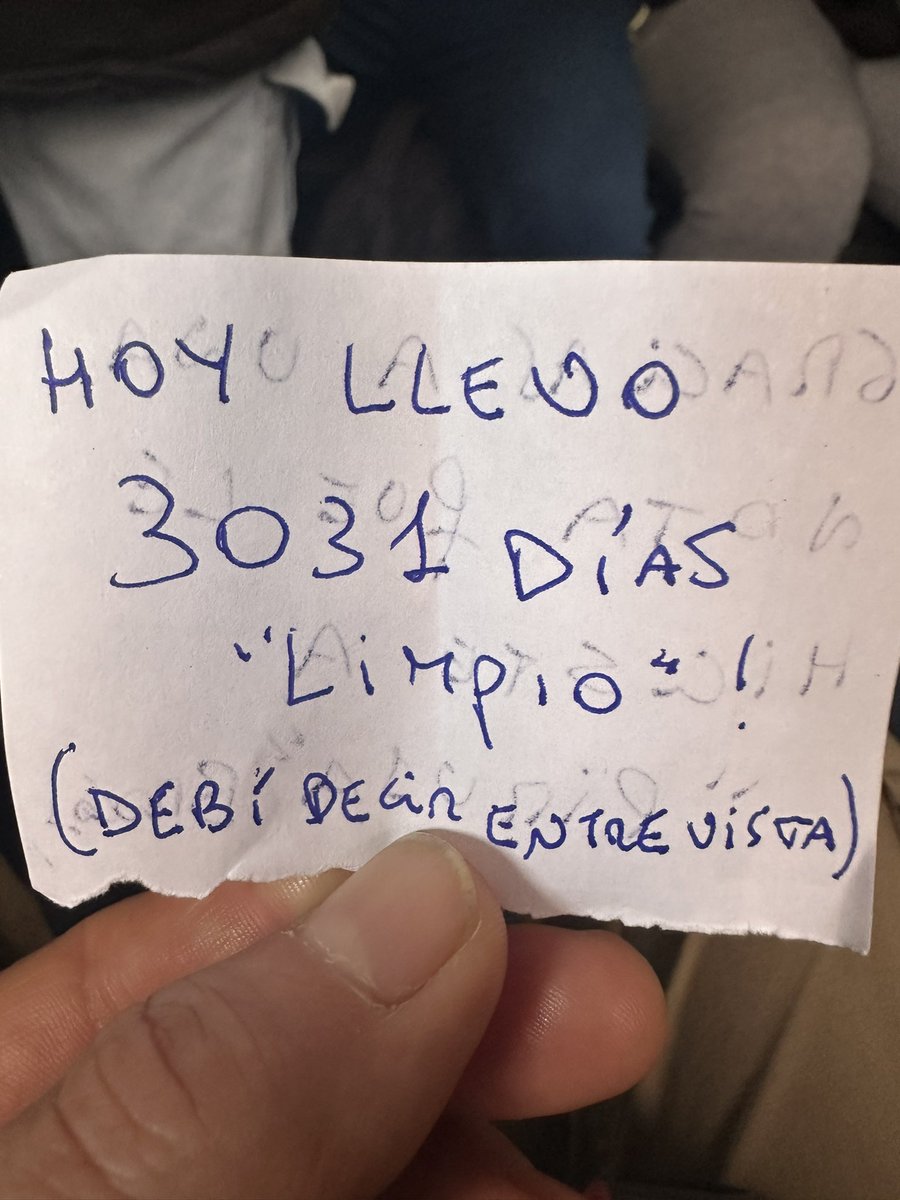 HOY LLEVO
3031 DÍAS
"LiMPiO"!
(DEBÍ DECiR ENTREViSTA)